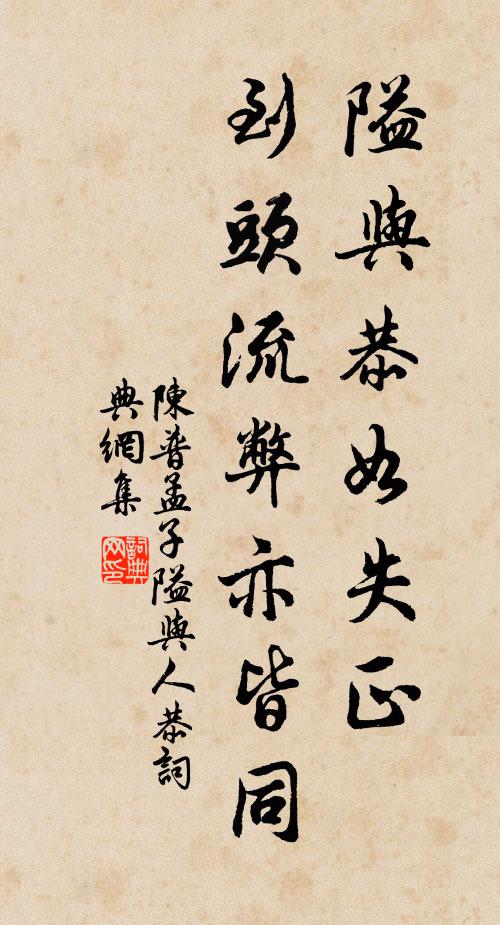 隘與恭如失正
到頭流弊亦皆同
陳普孟子隘與人恭詞
典網集
詞典网印